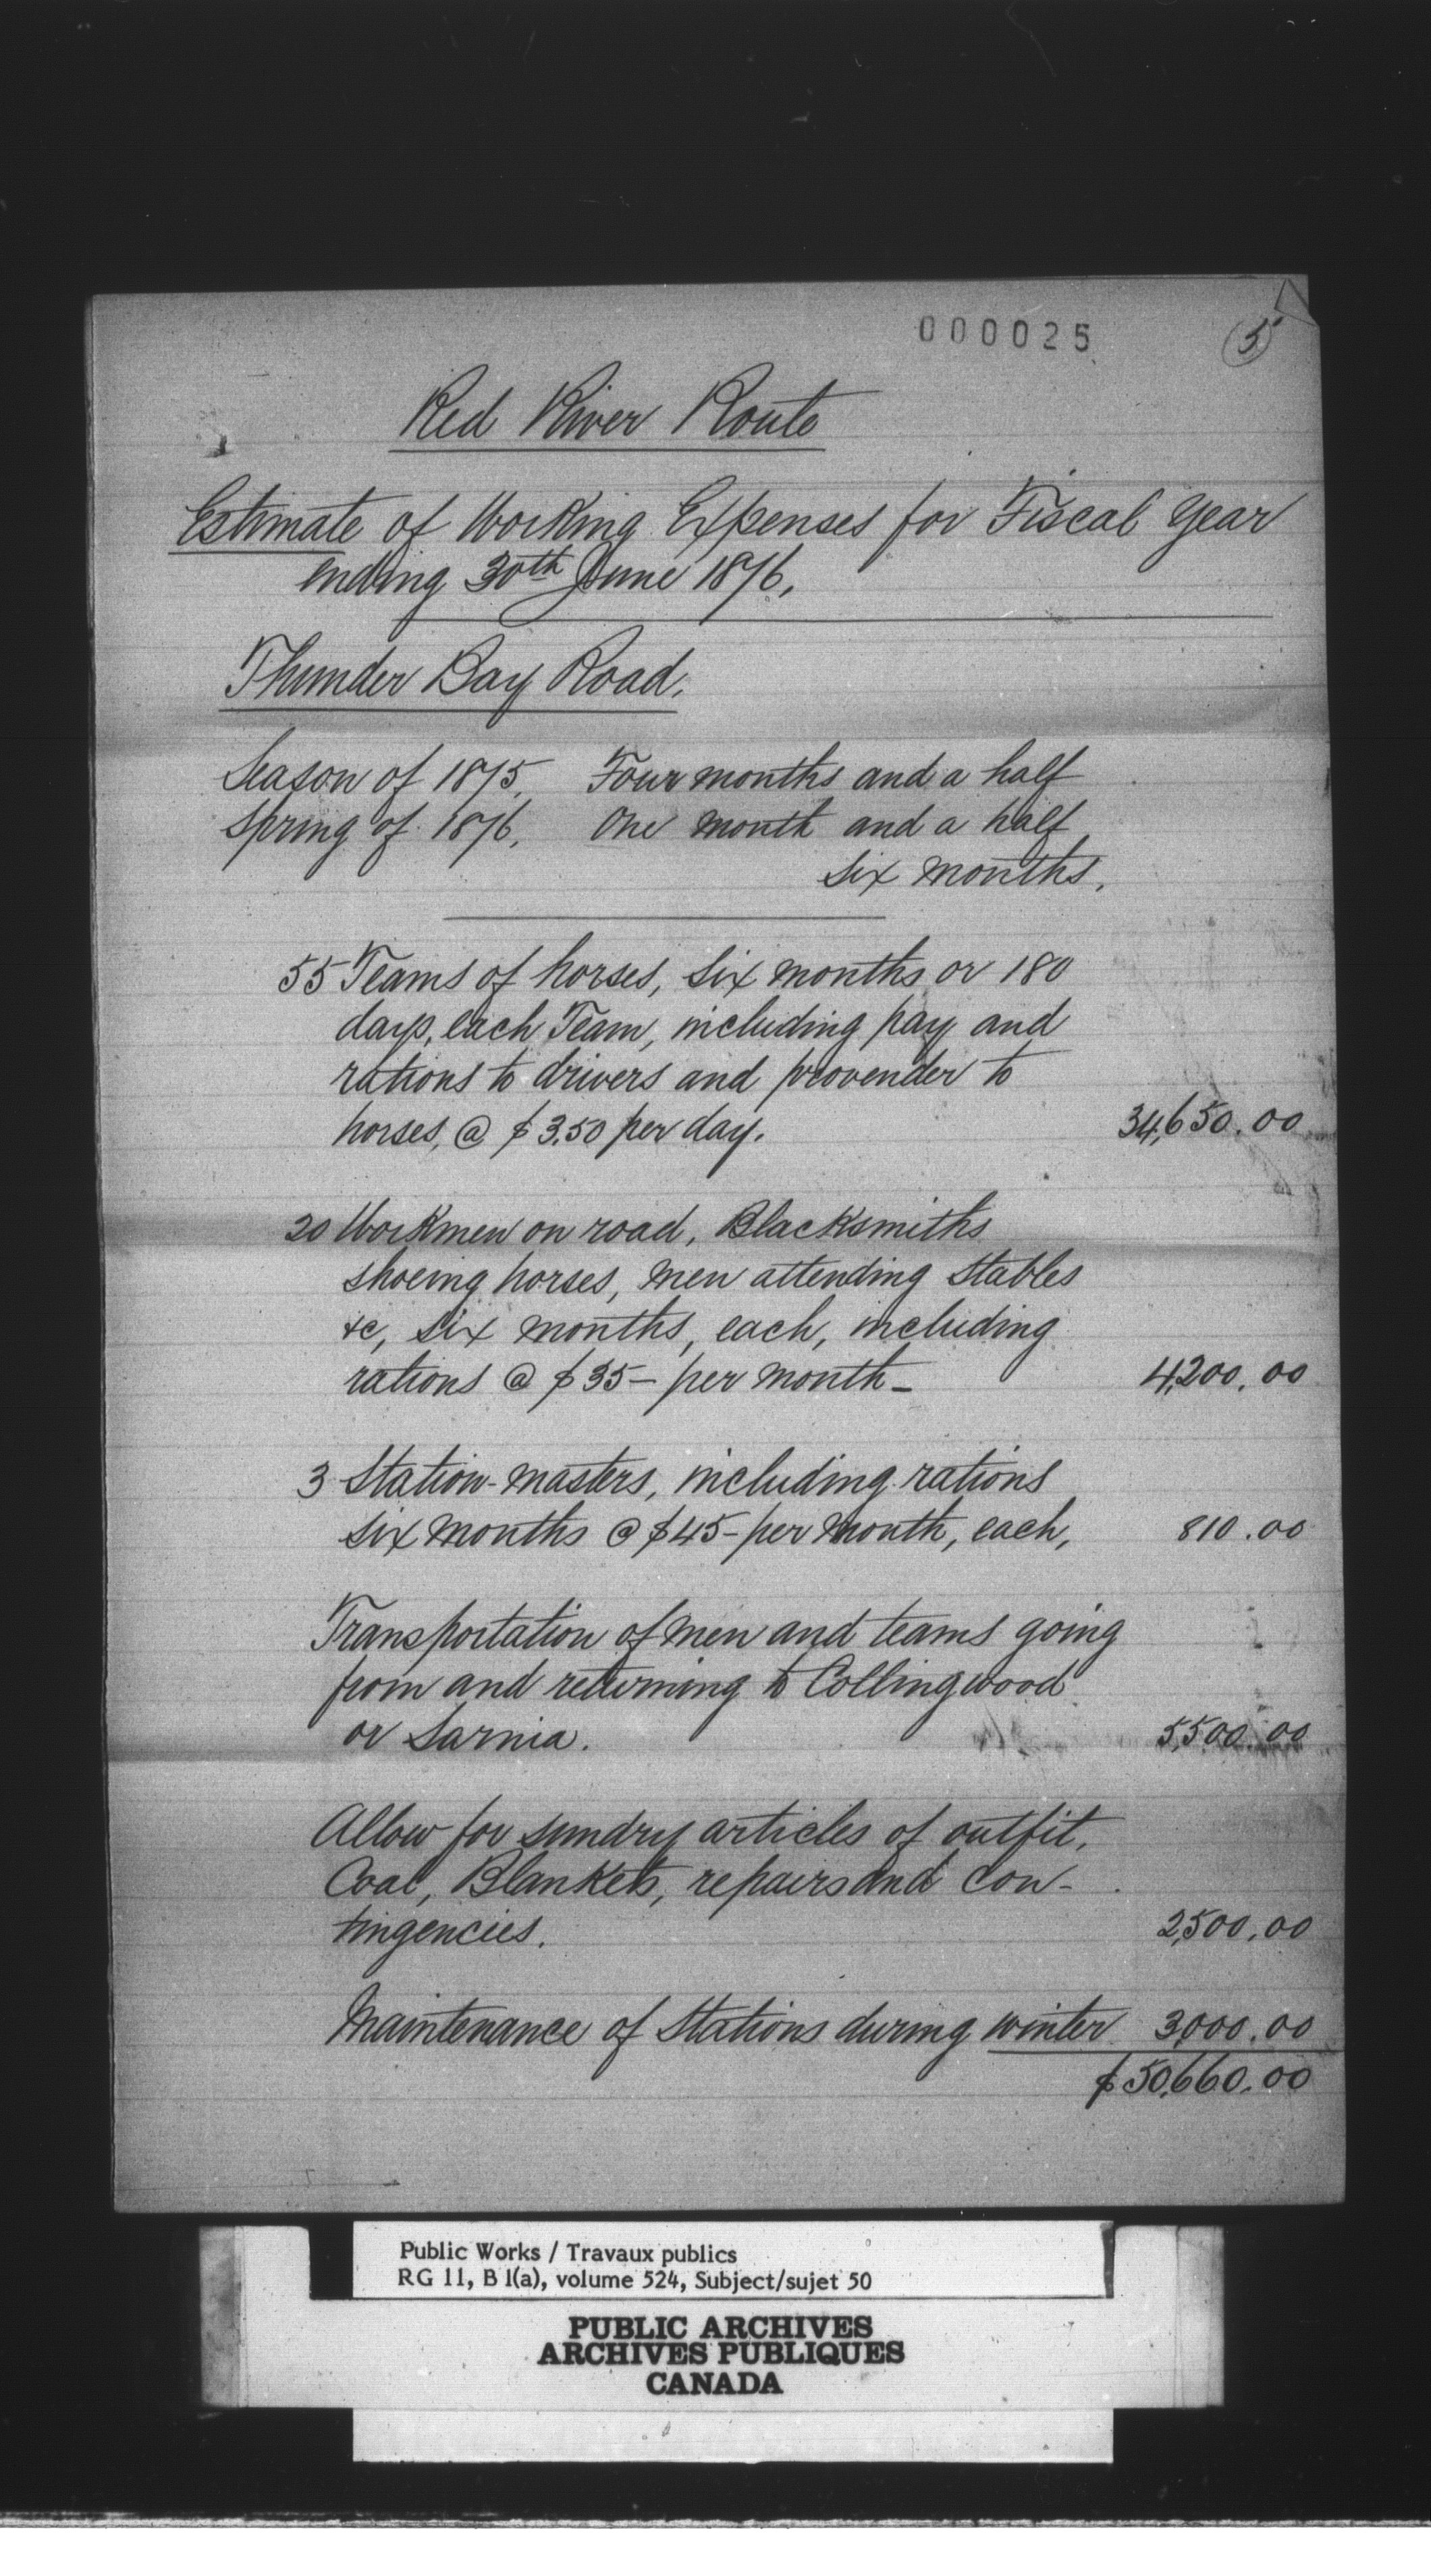 000025
5
Red River Route
Estimate of Working Expenses for Fiscal Year
ending 30th June 1876.
Thunder Bay Road.
Season of 1875. Four months and a half
Spring of 1876. One month and a half
Six months.
55 Teams of horses, six months or 180
days, each Team, including pay and
rations to drivers and provender to
horses, @ $3.50 per day. 34,650.00
20 Workmen on road, Blacksmiths
shoeing horses, men attending stables
&c, six months, each, including
rations @ $35- per month- 4,200.00
3 Station-masters, including rations
six months @ $45- per month, each, 810.00
Transportation of men and teams going
from and returning to Collingwood
or Sarnia. 5,500.00
Allow for sundry articles of outfit,
Coal, Blankets, repairs and con-
tingencies. 2,500.00
Maintenance of Stations during winter 3,000.00
$50,660.00
Public Works / Travaux publics
RG 11, B 1(a), volume 524, Subject/sujet 50
PUBLIC ARCHIVES
ARCHIVES PUBLIQUES
CANADA